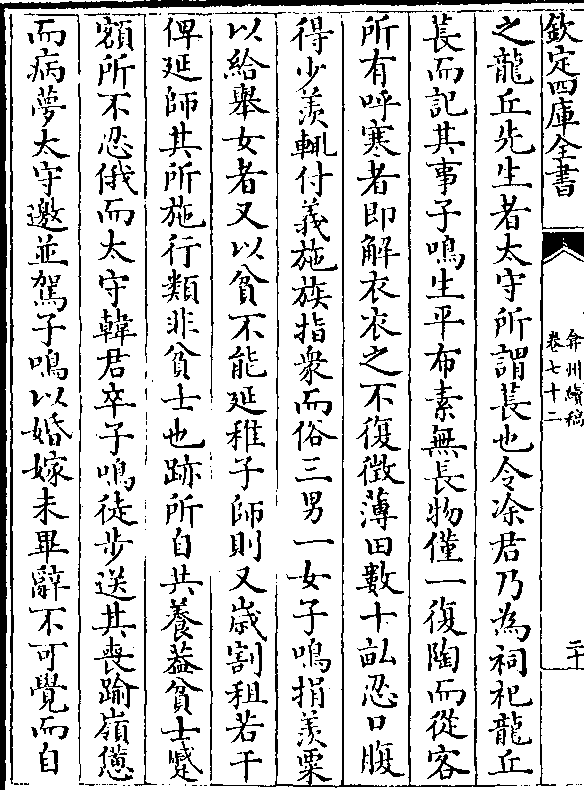 欽定四庫全書
弇州續稿
卷七十二
二十
之龍丘先生者太守所謂萇也令凃君乃為祠祀龍丘
萇而記其事子鳴生平布素無長物僅一復陶而從客
所有呼寒者即解衣衣之不復徴薄田數十畝忍口腹
得少羨輒付義施族指衆而俗三男一女子鳴捐羨粟
以給舉女者又以貧不能延稚子師則又歳割租若干
俾延師其所施行類非貧士也跡所自共養葢貧士蹙
額所不忍俄而太守韓君卒子鳴徒步送其喪踰嶺憊
而病夢太守邀並駕子鳴以婚嫁未畢辭不可覺而自